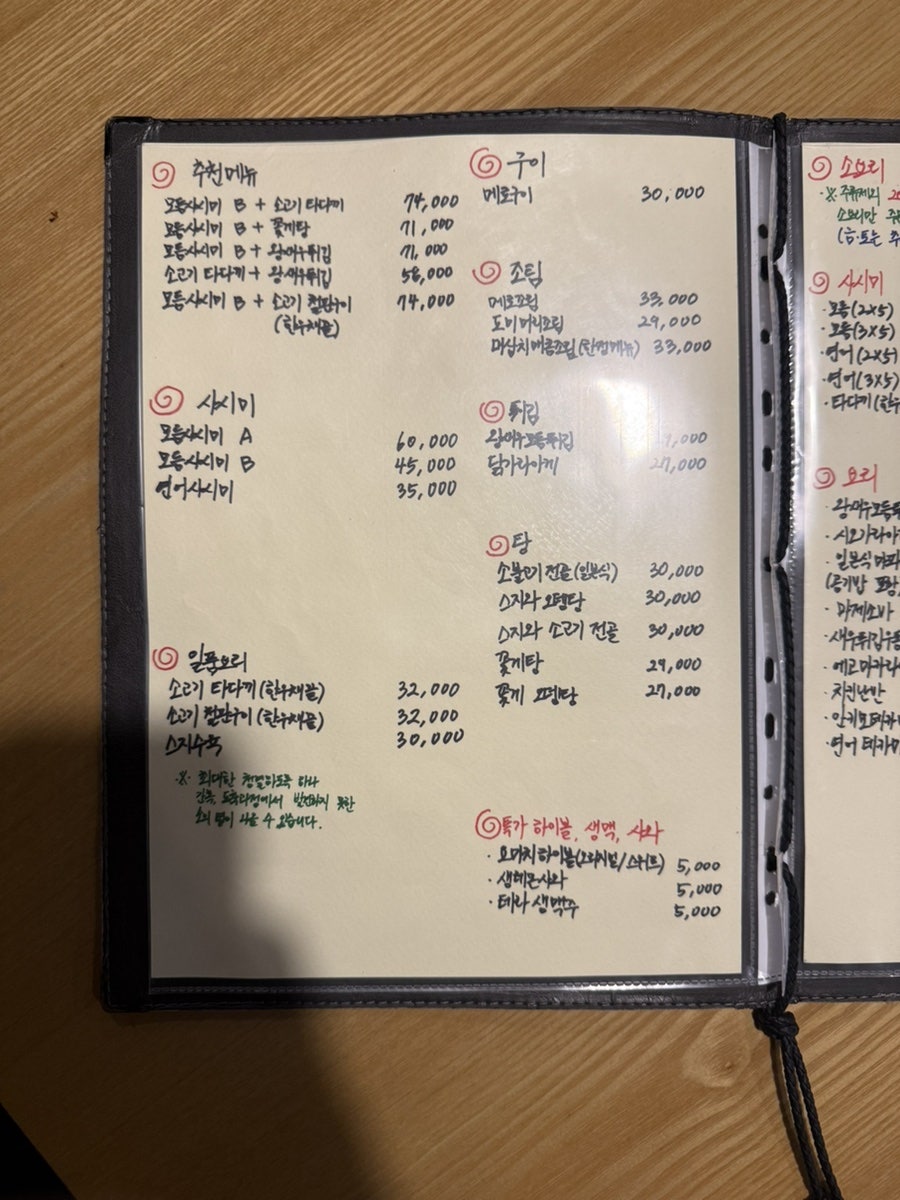 추천메뉴
모듬사시미 B + 소고기 타다끼 74,000
모듬사시미 B + 꽃게탕 71,000
모듬사시미 B + 왕새우튀김 71,000
소고기 타다끼 + 왕새우튀김 58,000
모듬사시미 B + 소고기 철판구이 74,000
(한우채끝)
사시미
모듬사시미 A 60,000
모듬사시미 B 45,000
연어사시미 35,000
일품요리
소고기 타다끼 (한우채끝) 32,000
소고기 철판구이 (한우채끝) 32,000
스지수육 30,000
※ 최대한 청결하도록 하나
간혹 도축과정에서 발견하지 못한
소의 털이 나올 수 있습니다.
구이
메로구이 30,000
조림
메로조림 33,000
도미머리조림 29,000
마삼치매콤조림 (한정메뉴) 33,000
튀김
왕새우모듬튀김
닭가라아게 27,000
탕
소불고기 전골 (일본식) 30,000
스지와 오뎅탕 30,000
스지와 소고기 전골 30,000
꽃게탕 29,000
꽃게 오뎅탕 27,000
특가 하이볼, 생맥, 사와
· 오마치 하이볼(오리지널/스위트) 5,000
· 생레몬사와 5,000
· 테라 생맥주 5,000
소요리
※ 주류제외
소요리만
사시미
· 모듬 (2x5)
· 모듬 (3x5)
· 연어 (2x5)
· 연어 (3x5)
· 타다끼
요리
· 왕새우모듬
· 시오가라아
· 일본식 마파
(공기밥 포함
· 마제소바
· 새우튀김우동
· 에그마카
· 치킨난반
· 연어